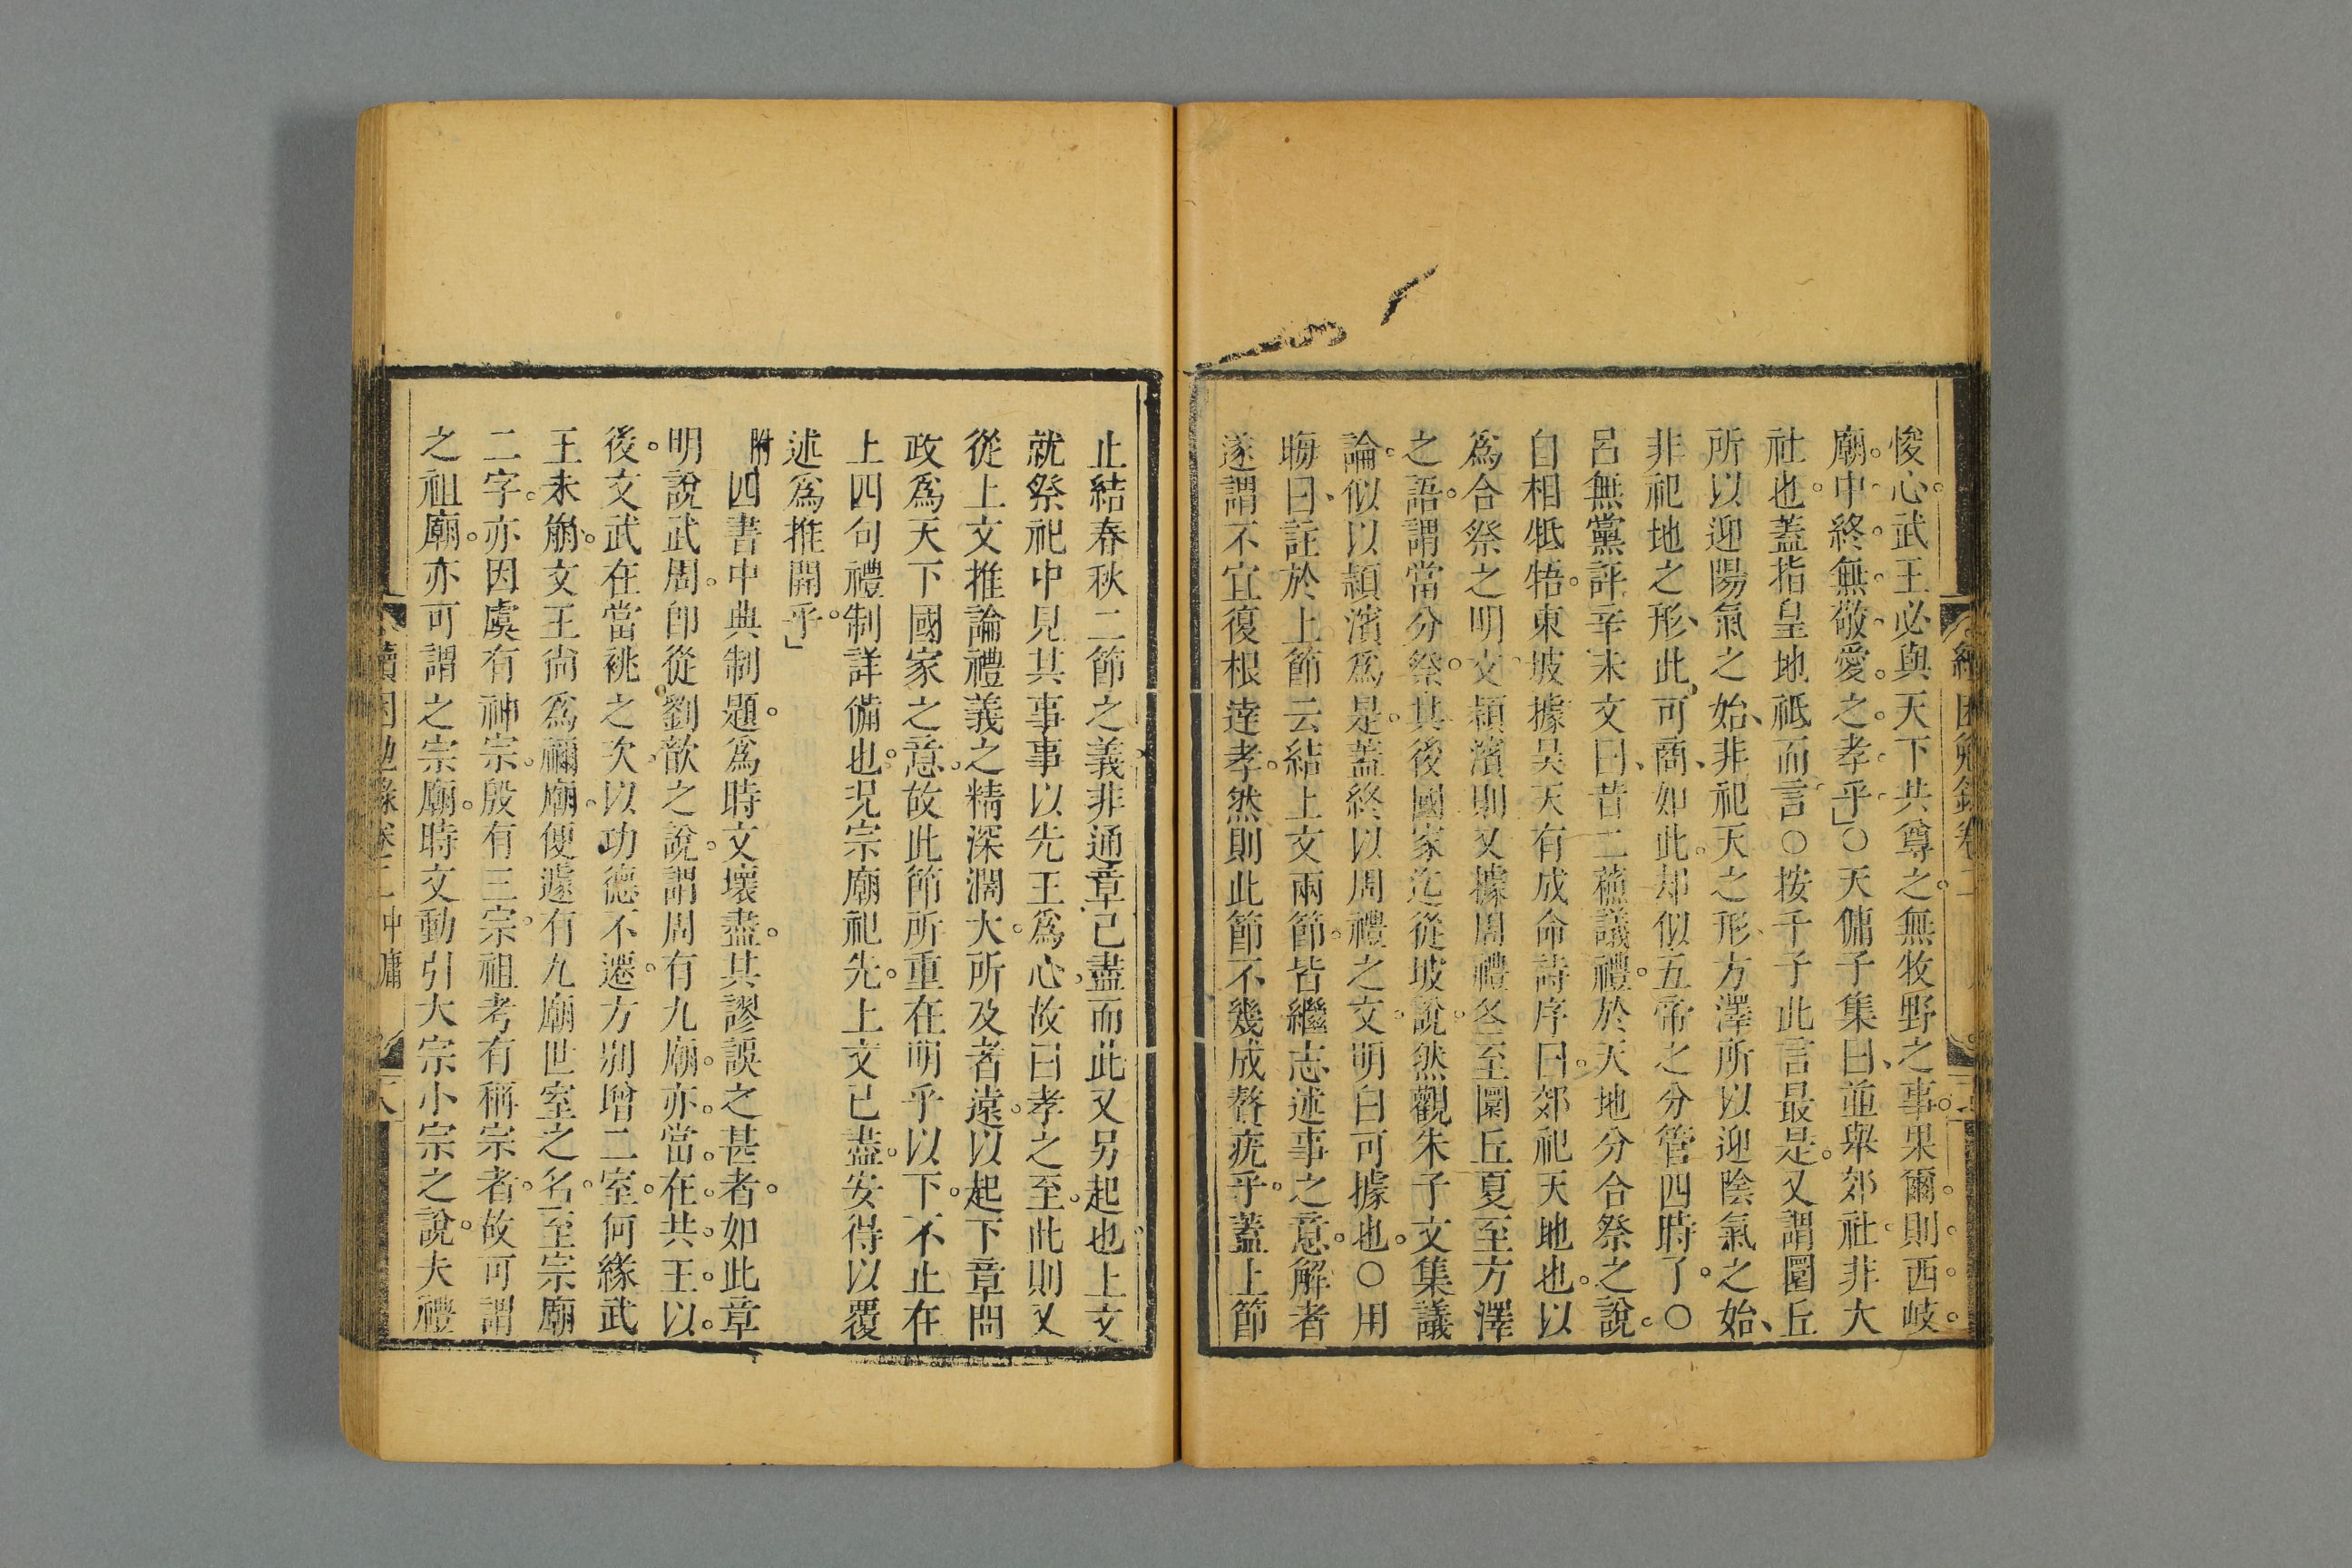 悛心。武王必與天下共尊之。無牧野之事。果爾。則西岐。
廟。中終。無敬愛。之。孝乎」○天傭子集曰、並舉郊社。非大
社也。蓋指皇地祇而言○按千子此言最是。又謂圜丘
所以迎陽氣之始、非祀天之形、方澤所以迎陰氣之始、
非祀地之形、此可商、如此。却似五帝之分管四時了。○
呂無黨評辛未文曰、昔二蘓議禮。於天地分合祭之說。
自相牴牾。東坡據吴天有成命詩序曰。郊祀天地也。以
為合祭之明文、頴濱則又據周禮冬至圜丘夏至方澤
之語。謂當分祭。其後國家迄從坡說。然觀朱子文集議
論。似以頴濱為是。蓋終以周禮之文。明白可據也。○用
晦曰、註於上節云結上文兩節。皆繼志述事之意。解者
遂謂不宜復根達孝。然則此節不幾成贅疣乎。蓋上節
止結春秋二節之義、非通章已盡而此又另起也。上文
就祭祀中見其事事以先王為心、故曰孝之至。此則又
從上文推論禮義之精深濶大。所及者遠。以起下章問
政為天下國家之意。故此節所重在明乎以下。不止在
上四句禮制詳備也。况宗廟祀先。上文已盡。安得以覆
述為推開乎。」
附 四書中典制題。為時文壞盡。其謬誤之甚者。如此章
明說武周。即從劉歆之說。謂周有九廟。亦當。在。共。王。以。
後。文武在當祧之次。以功德不遷。方别增二室。何緣武
王未崩。文王尚為禰廟。便遽有九廟世室之名。至宗廟
二字。亦因虞有神宗。殷有三宗。祖考有稱宗者。故可謂
之祖廟。亦可謂之宗廟。時文動引大宗小宗之說。夫禮
續困勉錄卷二 中庸